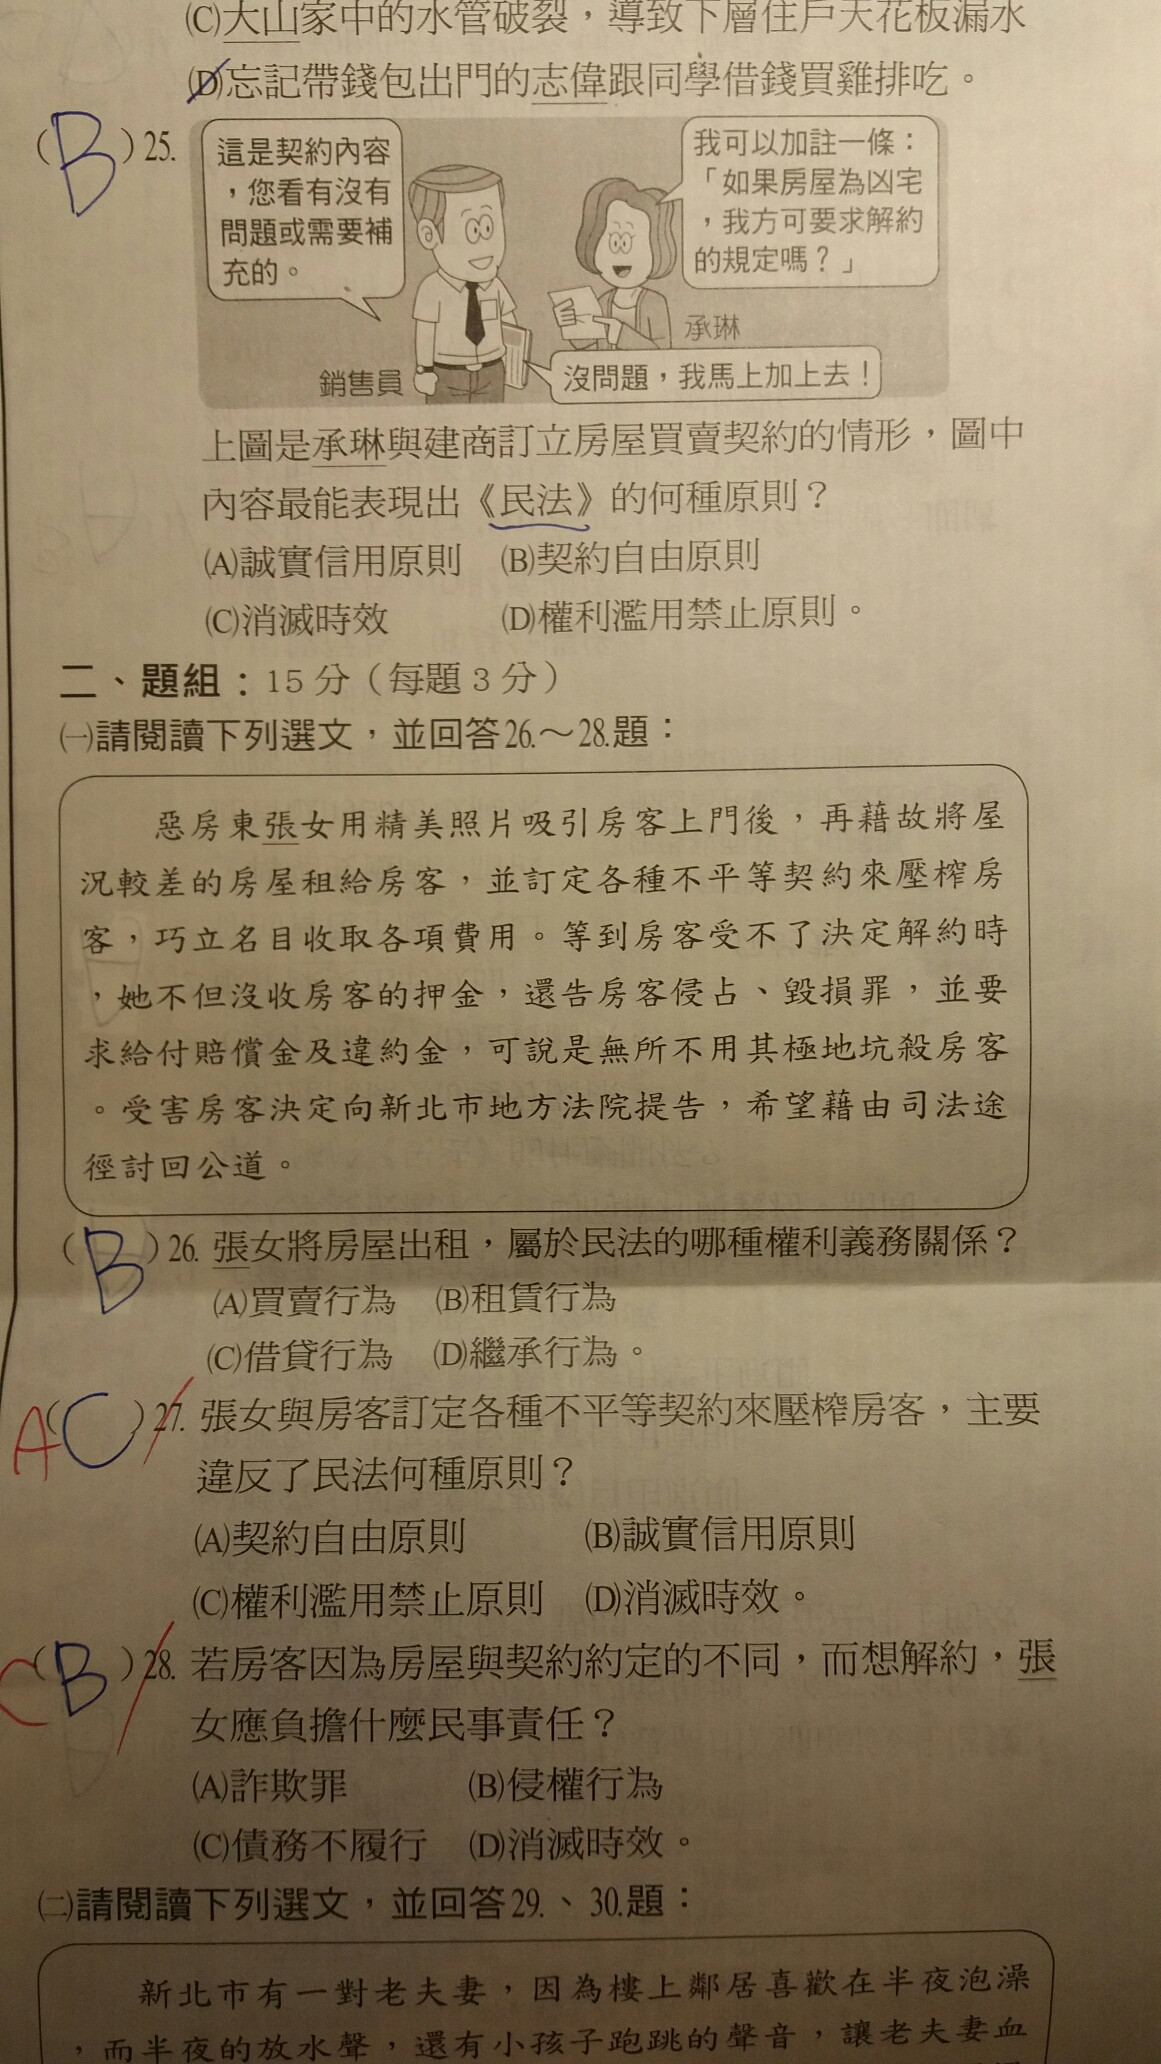 (C)大山家中的水管破裂，導致下層住戶天花板漏水
(D)忘記帶錢包出門的志偉跟同學借錢買雞排吃。
(B)25.
這是契約內容
，您看有沒有
問題或需要補
充的。
我可以加註一條：
「如果房屋為凶宅
，我方可要求解約
的規定嗎？」
承琳
銷售員
沒問題，我馬上加上去！
上圖是承琳與建商訂立房屋買賣契約的情形，圖中
內容最能表現出《民法》的何種原則？
(A)誠實信用原則 (B)契約自由原則
(C)消滅時效 (D)權利濫用禁止原則。
二、題組：15分（每題3分）
㈠請閱讀下列選文，並回答26.～28.題：
惡房東張女用精美照片吸引房客上門後，再藉故將屋
況較差的房屋租給房客，並訂定各種不平等契約來壓榨房
客，巧立名目收取各項費用。等到房客受不了決定解約時
，她不但沒收房客的押金，還告房客侵占、毀損罪，並要
求給付賠償金及違約金，可說是無所不用其極地坑殺房客
。受害房客決定向新北市地方法院提告，希望藉由司法途
徑討回公道。
(B)26. 張女將房屋出租，屬於民法的哪種權利義務關係？
(A)買賣行為 (B)租賃行為
(C)借貸行為 (D)繼承行為。
A(C)27. 張女與房客訂定各種不平等契約來壓榨房客，主要
違反了民法何種原則？
(A)契約自由原則 (B)誠實信用原則
(C)權利濫用禁止原則 (D)消滅時效。
C(B)28. 若房客因為房屋與契約約定的不同，而想解約，張
女應負擔什麼民事責任？
(A)詐欺罪 (B)侵權行為
(C)債務不履行 (D)消滅時效。
㈡請閱讀下列選文，並回答29.、30.題：
新北市有一對老夫妻，因為樓上鄰居喜歡在半夜泡澡
，而半夜的放水聲，還有小孩子跑跳的聲音，讓老夫妻血